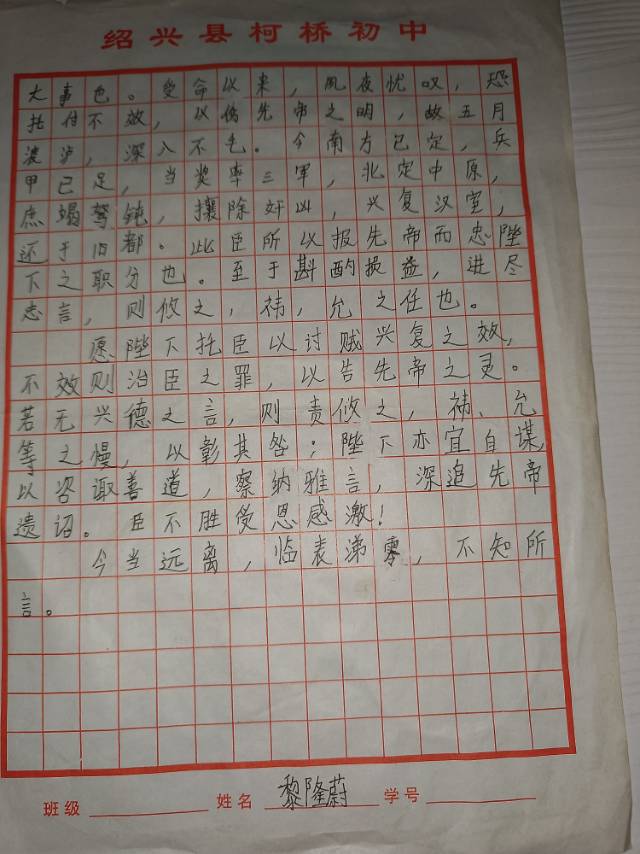 绍兴县柯桥初中
大事也。受命以来，夙夜忧叹，恐
托付不效，以伤先帝之明，故五月
渡泸，深入不毛。今南方已定，兵
甲已足，当奖率三军，北定中原，
庶竭驽钝，攘除奸凶，兴复汉室，
还于旧都。此臣所以报先帝而忠陛
下之职分也。至于斟酌损益，进尽
忠言，则攸之，祎，允之任也。
愿陛下托臣以讨贼兴复之效，
不效则治臣之罪，以告先帝之灵。
若无兴德之言，则责攸之，祎、允
等之慢，以彰其咎；陛下亦宜自谋，
以咨诹善道，察纳雅言，深追先帝
遗诏。臣不胜受恩感激！
今当远离，临表涕零，不知所
言。
班级 姓名 黎隆蔚 学号